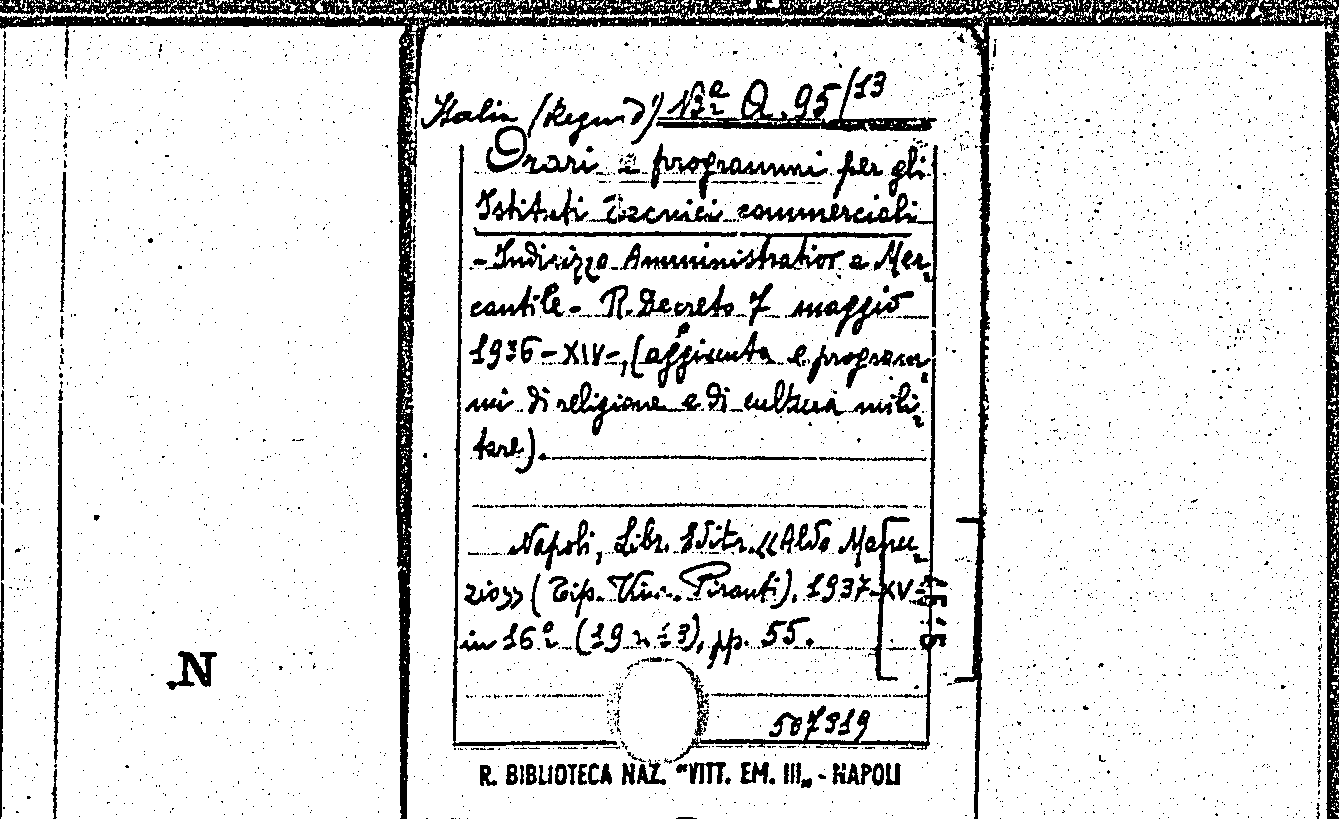 Italia (Regno d') 13ª Q. 95/13
Orari e programmi per gli
Istituti Tecnici commerciali
- Indirizzo Amministrativo e Mer-
cantile - R. Decreto 7 maggio
1936-XIV-, (aggiunta e program-
mi di religione e di cultura mili-
tare).
Napoli, Libr. Editr. «Aldo Manu-
zio» (Tip. Vinc. Pironti). 1937-XV-
in 16º (19 x 13), pp. 55.
15,5
.N
507319
R. BIBLIOTECA NAZ. "VITT. EM. III„ - NAPOLI